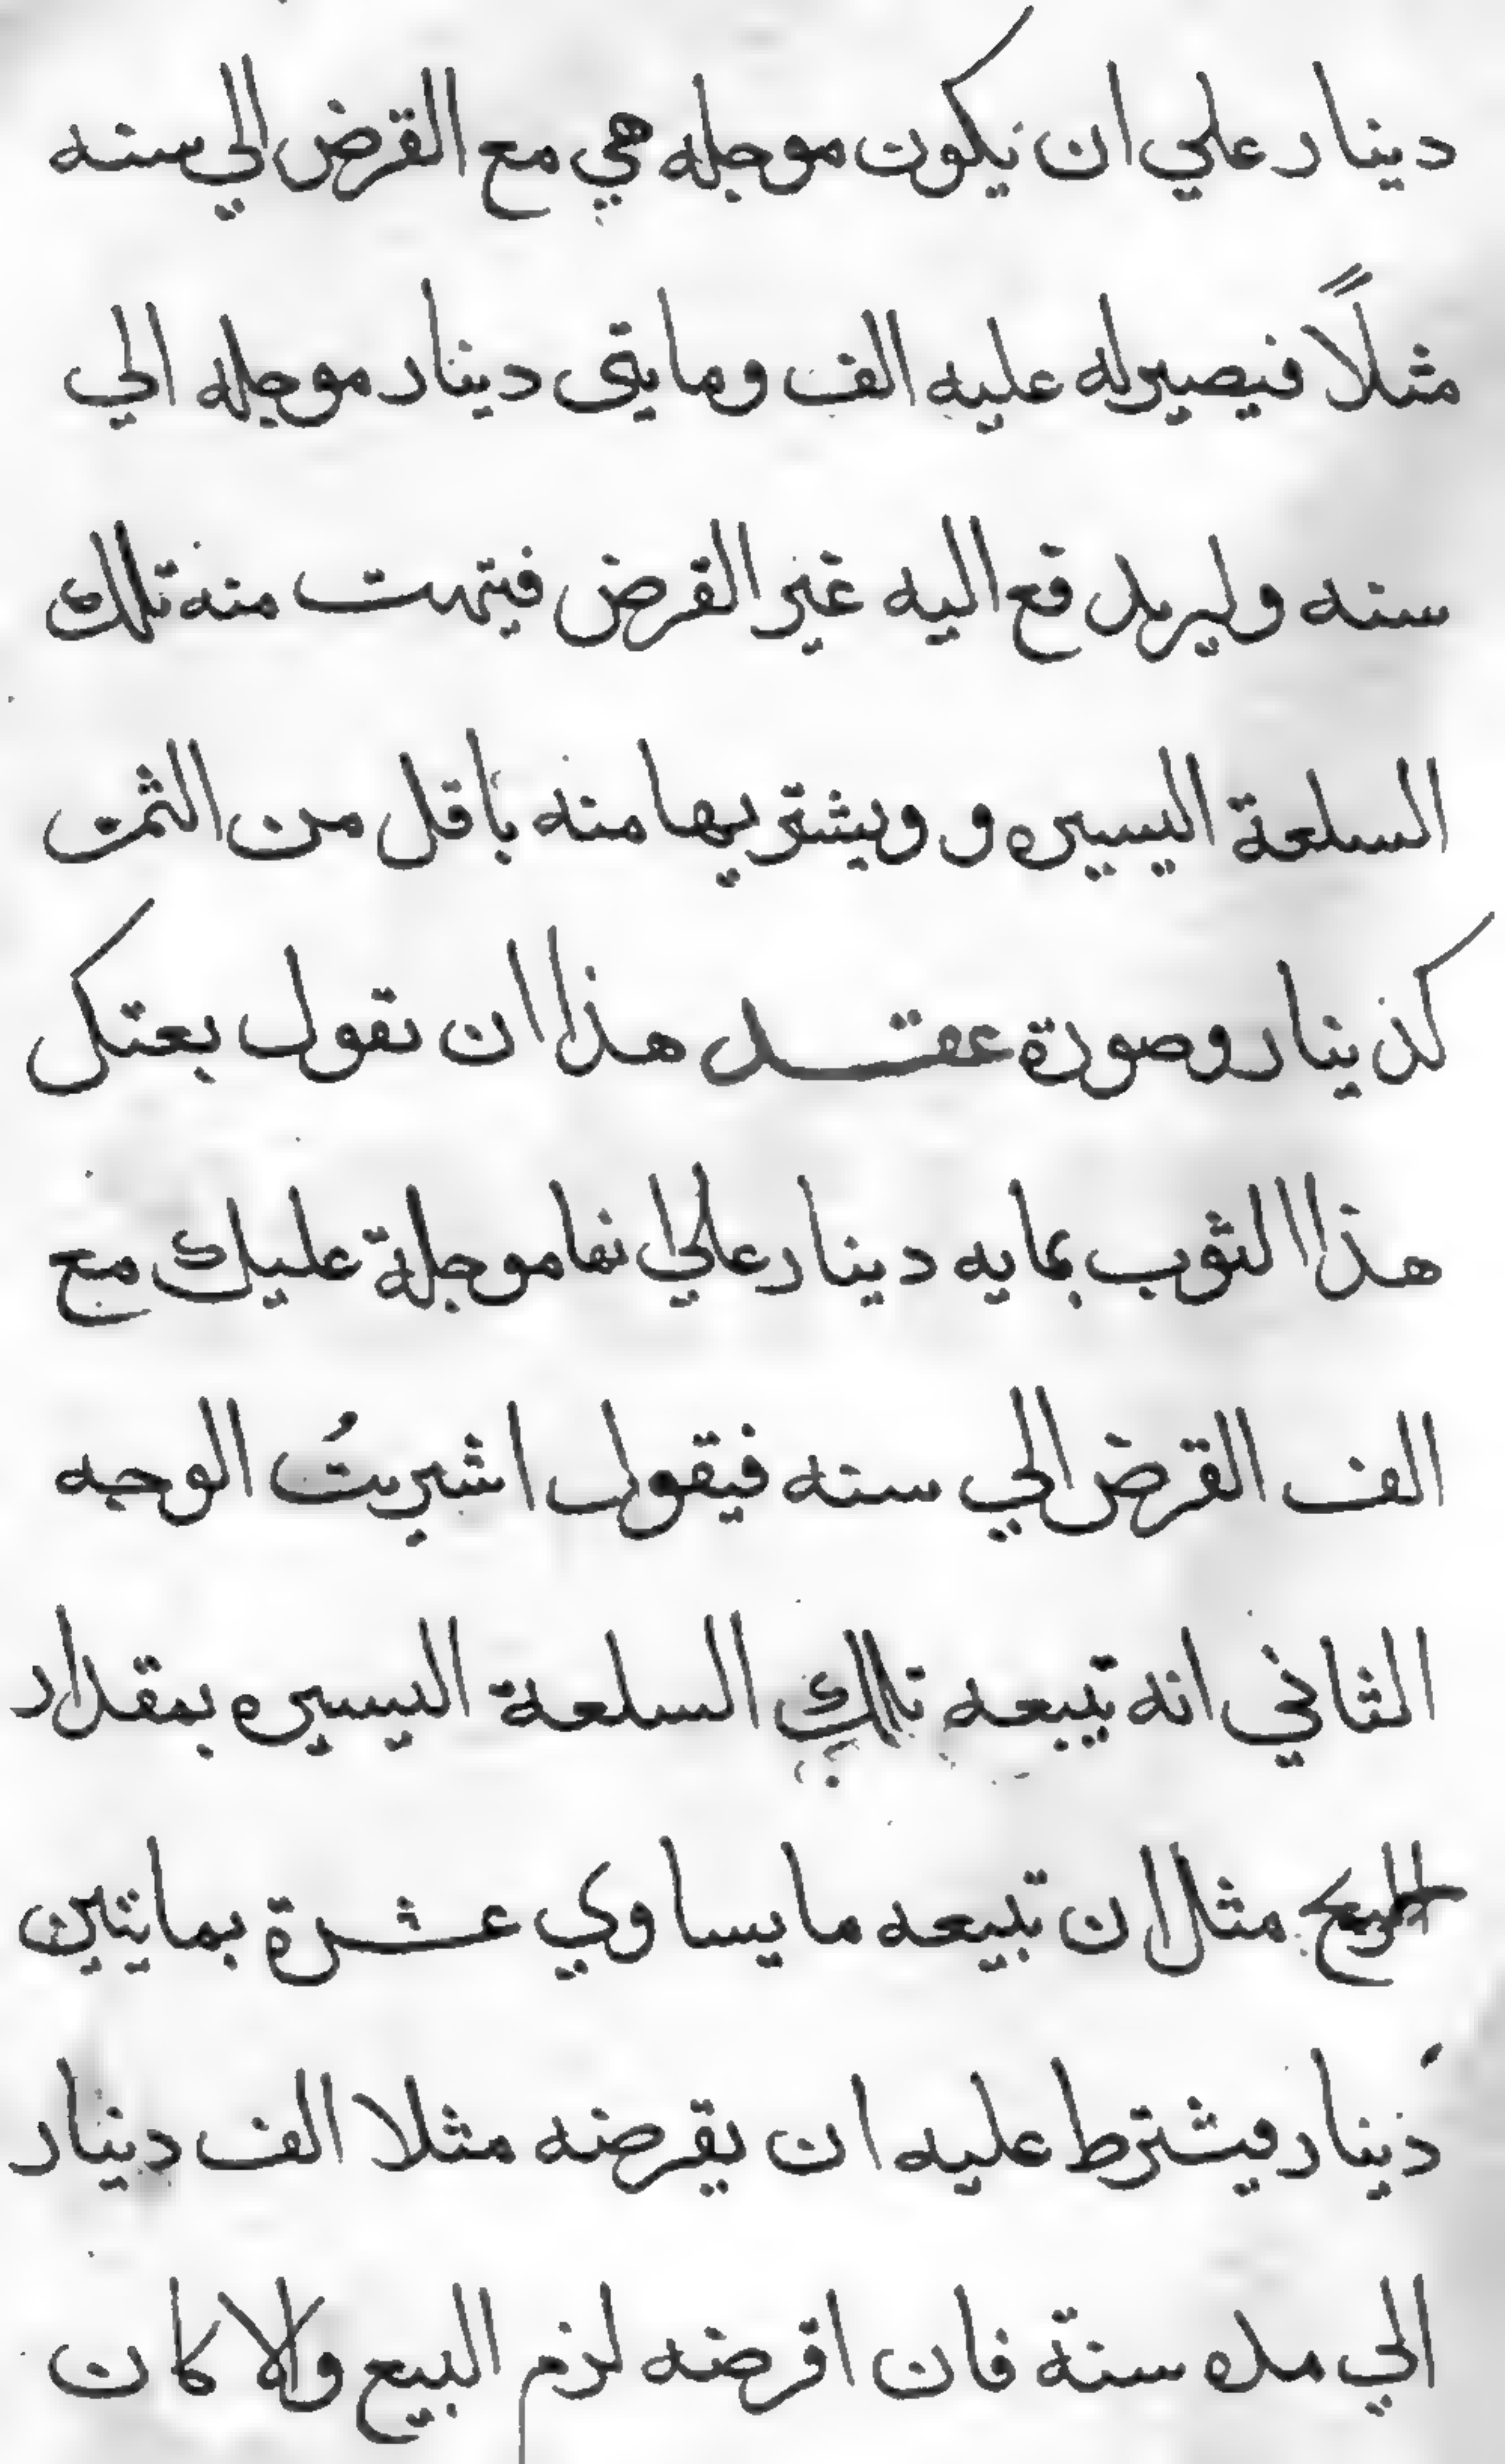 دينار علي ان يكون موجله هي مع القرض الي سنه
مثلاً فيصير له عليه الف ومايتى دينار موجله الي
سنه ولم يدفع اليه غير القرض فيتهب منه تلك
السلعة اليسيره و ويشتريها منه باقل من الثمن
كذينار وصورة عقد هذا ان تقول بعتك
هذا الثوب بمايه دينار علي انها موجلة عليك مع
الف القرض الي سنه فيقول اشريتُ الوجه
الثاني انه تبيعه تلك السلعة اليسيره بمقدار
الربح مثل ان تبيعه ما يساوي عشرة بمايتين
دينار فيشترط عليه ان يقرضه مثلا الف دينار
الي مده سنة فان اقرضه لزم البيع والا كان